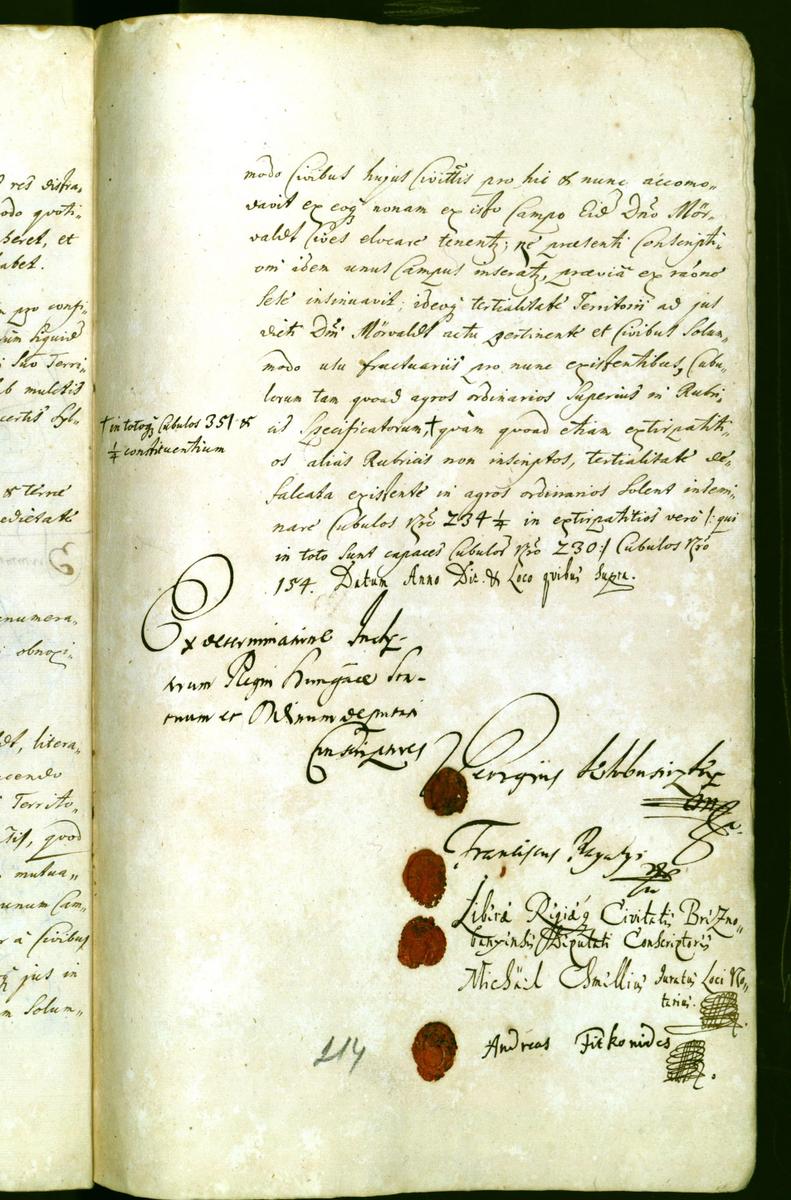 res distra,
odo quoti-
beret, et
labet.
pro confi-
Suo Terri-
mulctis
& terræ
edietate
enumera,
obnoxi-
litera-
acendo
Territo,
quod
mutua-
unum Cam,
r à Civibus
jus in
m Solum-
modo Civibus hujus Civittis pro hic & nunc accomo-
davit ex eoq nonam ex isto Campo Eid Dno Mör-
valdt Cives elocare tenent; ne præsenti Conscripti-
oni idem unus Campus inserat, præviâ ex raone
sese insinuavit; ideoq tertialitatē Territorii ad jus
dicti Dni Mörvaldt actu pertinentē et Civibus Solum-
modo usu fructuariis pro nunc existentibus, Cubu-
lorum tam quoad agros ordinarios Superius in Rubri,
cis Specificatorum † quàm quoad etiam extirpatiti-
† in totoq Cubulos 351 &
¼ constituentium
os aliàs Rubricis non inscriptos, tertialitatē de-
falcata existente in agros ordinarios Solent insemi-
nare Cubulos Nro 234 ¼ in extirpatitios vero /: qui
in toto Sunt capaces Cubulor Nro 230 :/ Cubulos Nro
154. Datum Anno Die & Loco quibus Supra.
Ex determinatione Incly-
torum Regni Hungariæ Sta-
tuum et Ordinum deputati
Conscriptores
Georgius
Franciscus
Liberæ Regiæq Civitatis Brizno-
banyensis Deputati Conscriptores
Michäil Chmillius Juratus Loci No-
tarius.
Andreas Fitkonides
214